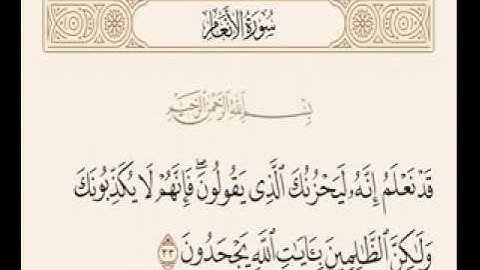 سُورَةُ الأَنْعَامِ
بِسْمِ اللَّهِ الرَّحْمَٰنِ الرَّحِيمِ
قَدْ نَعْلَمُ إِنَّهُۥ لَيَحْزُنُكَ ٱلَّذِى يَقُولُونَ ۖ فَإِنَّهُمْ لَا يُكَذِّبُونَكَ
وَلَٰكِنَّ ٱلظَّٰلِمِينَ بِـَٔايَٰتِ ٱللَّهِ يَجْحَدُونَ ٣٣